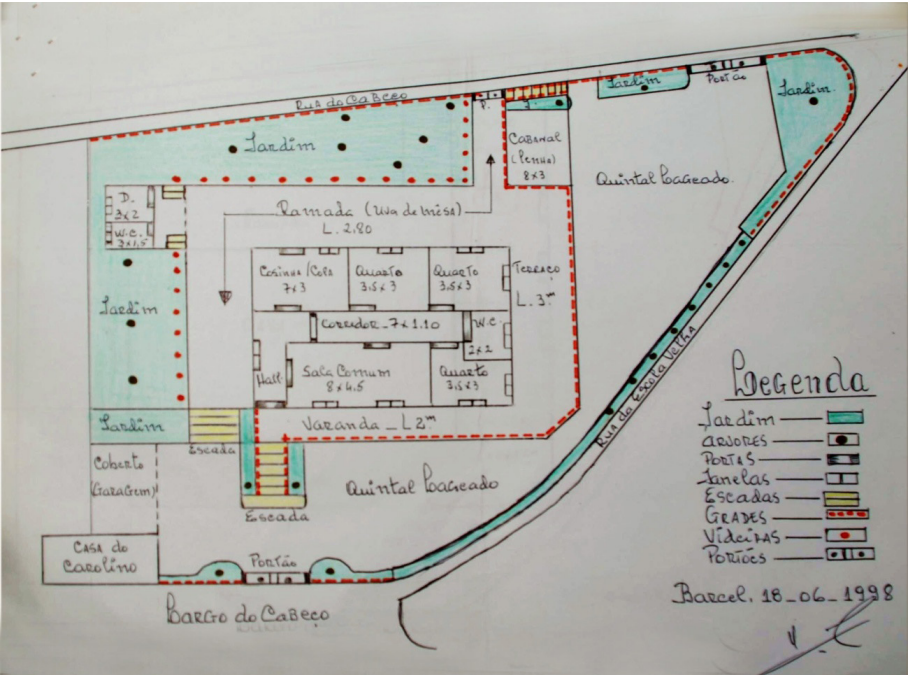 Rua do Cabeço
Jardim
P.
J
Jardim
Portão
Jardim
Cabanal
(Lenha)
8x3
Quintal Lageado.
D.
3x2
W.C.
2x1,5
Ramada (Uva de Mesa)
L. 2.80
Cosinha/Copa
7x3
Quarto
3,5x3
Quarto
3,5x3
Terraço
L. 3m
Jardim
Corredor_7x1.10
W.C.
2x2
Hall
Sala Comum
8x4.5
Quarto
3,5x3
Jardim
Escada
Varanda_L2m
Rua da Escola Velha
Coberto
(Garagem)
Quintal Lageado
Escada
Casa do
Carolino
Portão
Largo do Cabeço
Legenda
Jardim
Arvores
Portas
Janelas
Escadas
Grades
Videiras
Portões
Barcel, 18_06_1998